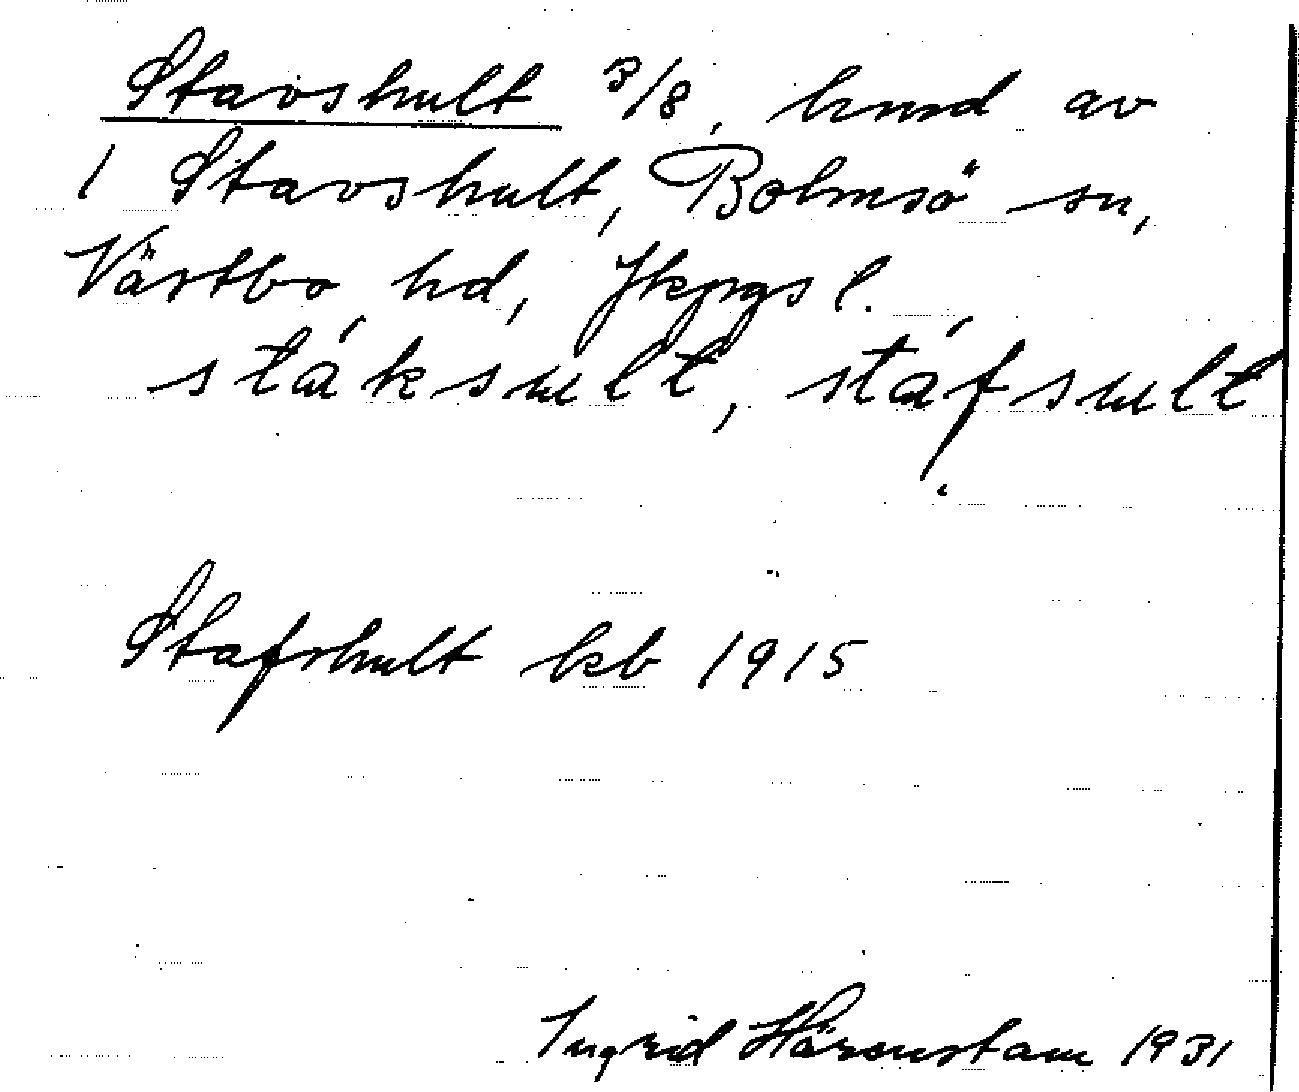 Stavshult 3/8, hmd av
1 Stavshult, Bolmsö sn,
Västbo hd, Jkpgs l.
stáksult, stáfsult
Stafshult kb 1915
Ingrid Härenstam 1931